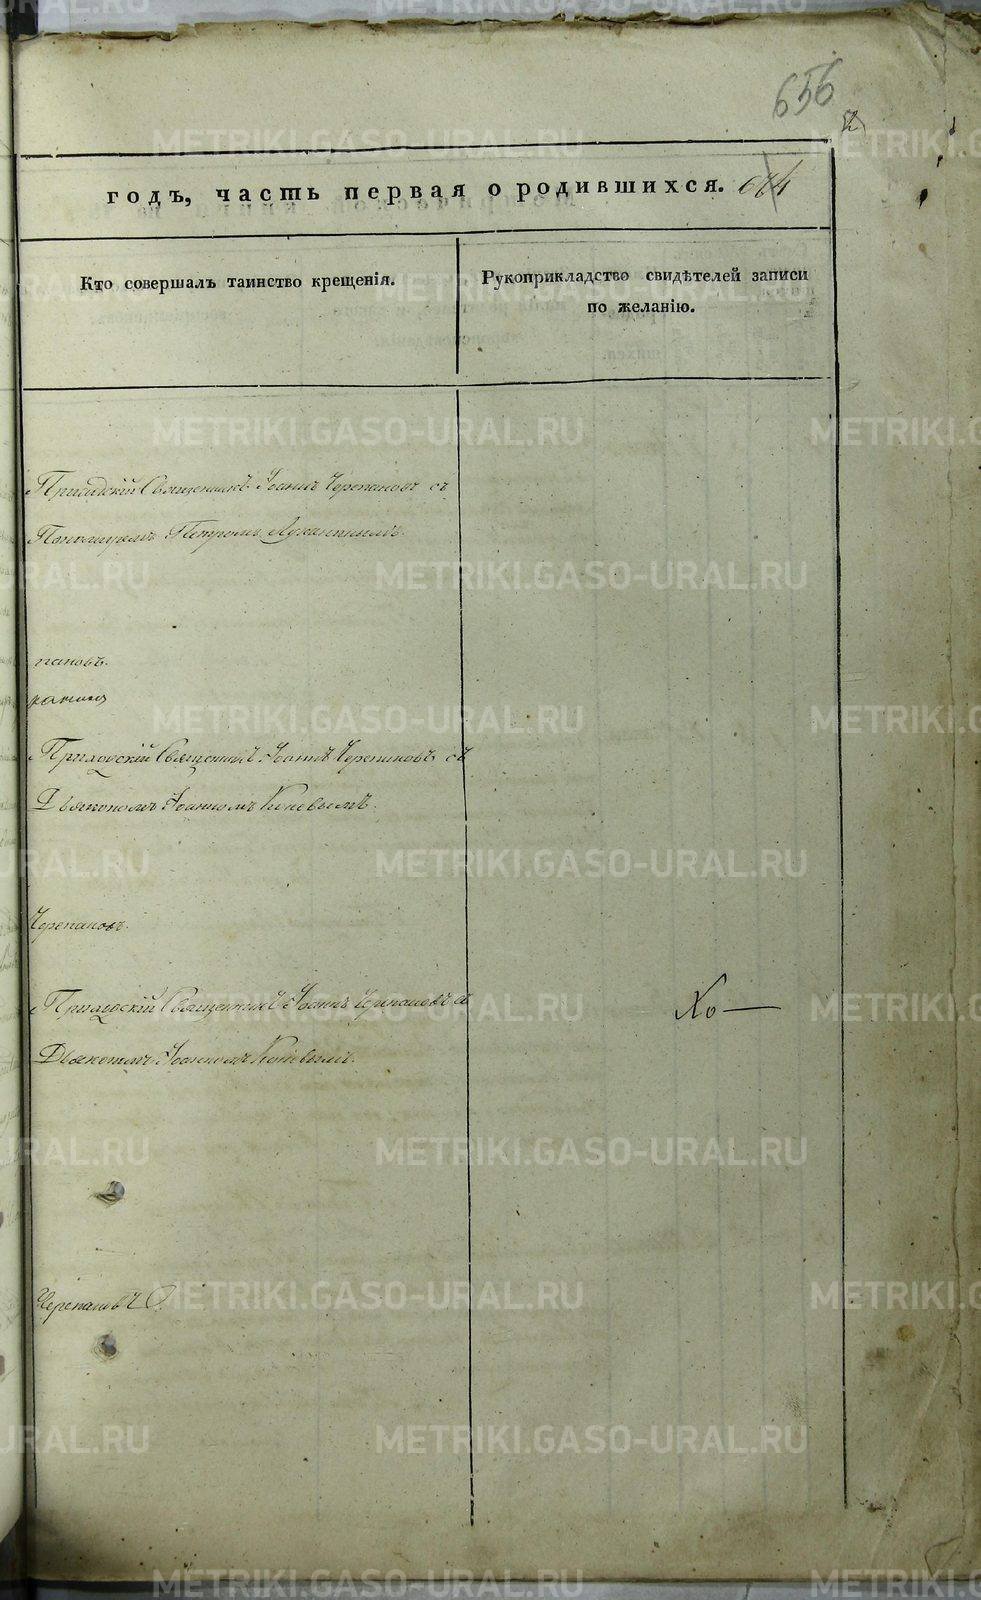 656
2
годъ, часть первая о родившихся. 674
Кто совершалъ таинство крещенія.
Рукоприкладство свидѣтелей записи
по желанію.
Приходскій Священникъ Іоаннъ Черепановъ съ
Пономаремъ Петромъ
пановъ.
Приходскій Священникъ Іоаннъ Черепановъ съ
Дьякономъ Іоанномъ
Черепановъ.
Приходскій Священникъ Іоаннъ Черепановъ съ
Хо—
Дьякономъ Іоанномъ
Черепановъ
METRIKI.GASO-URAL.RU